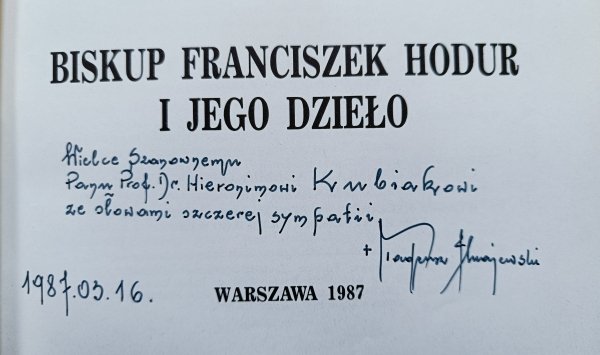 BISKUP FRANCISZEK HODUR
I JEGO DZIEŁO
Wielce Szanownemu
Panu Prof. Dr. Hieronimowi Kubiakowi
ze słowami szczerej sympatii
+ Tadeusz Majewski
1987.03.16.
WARSZAWA 1987